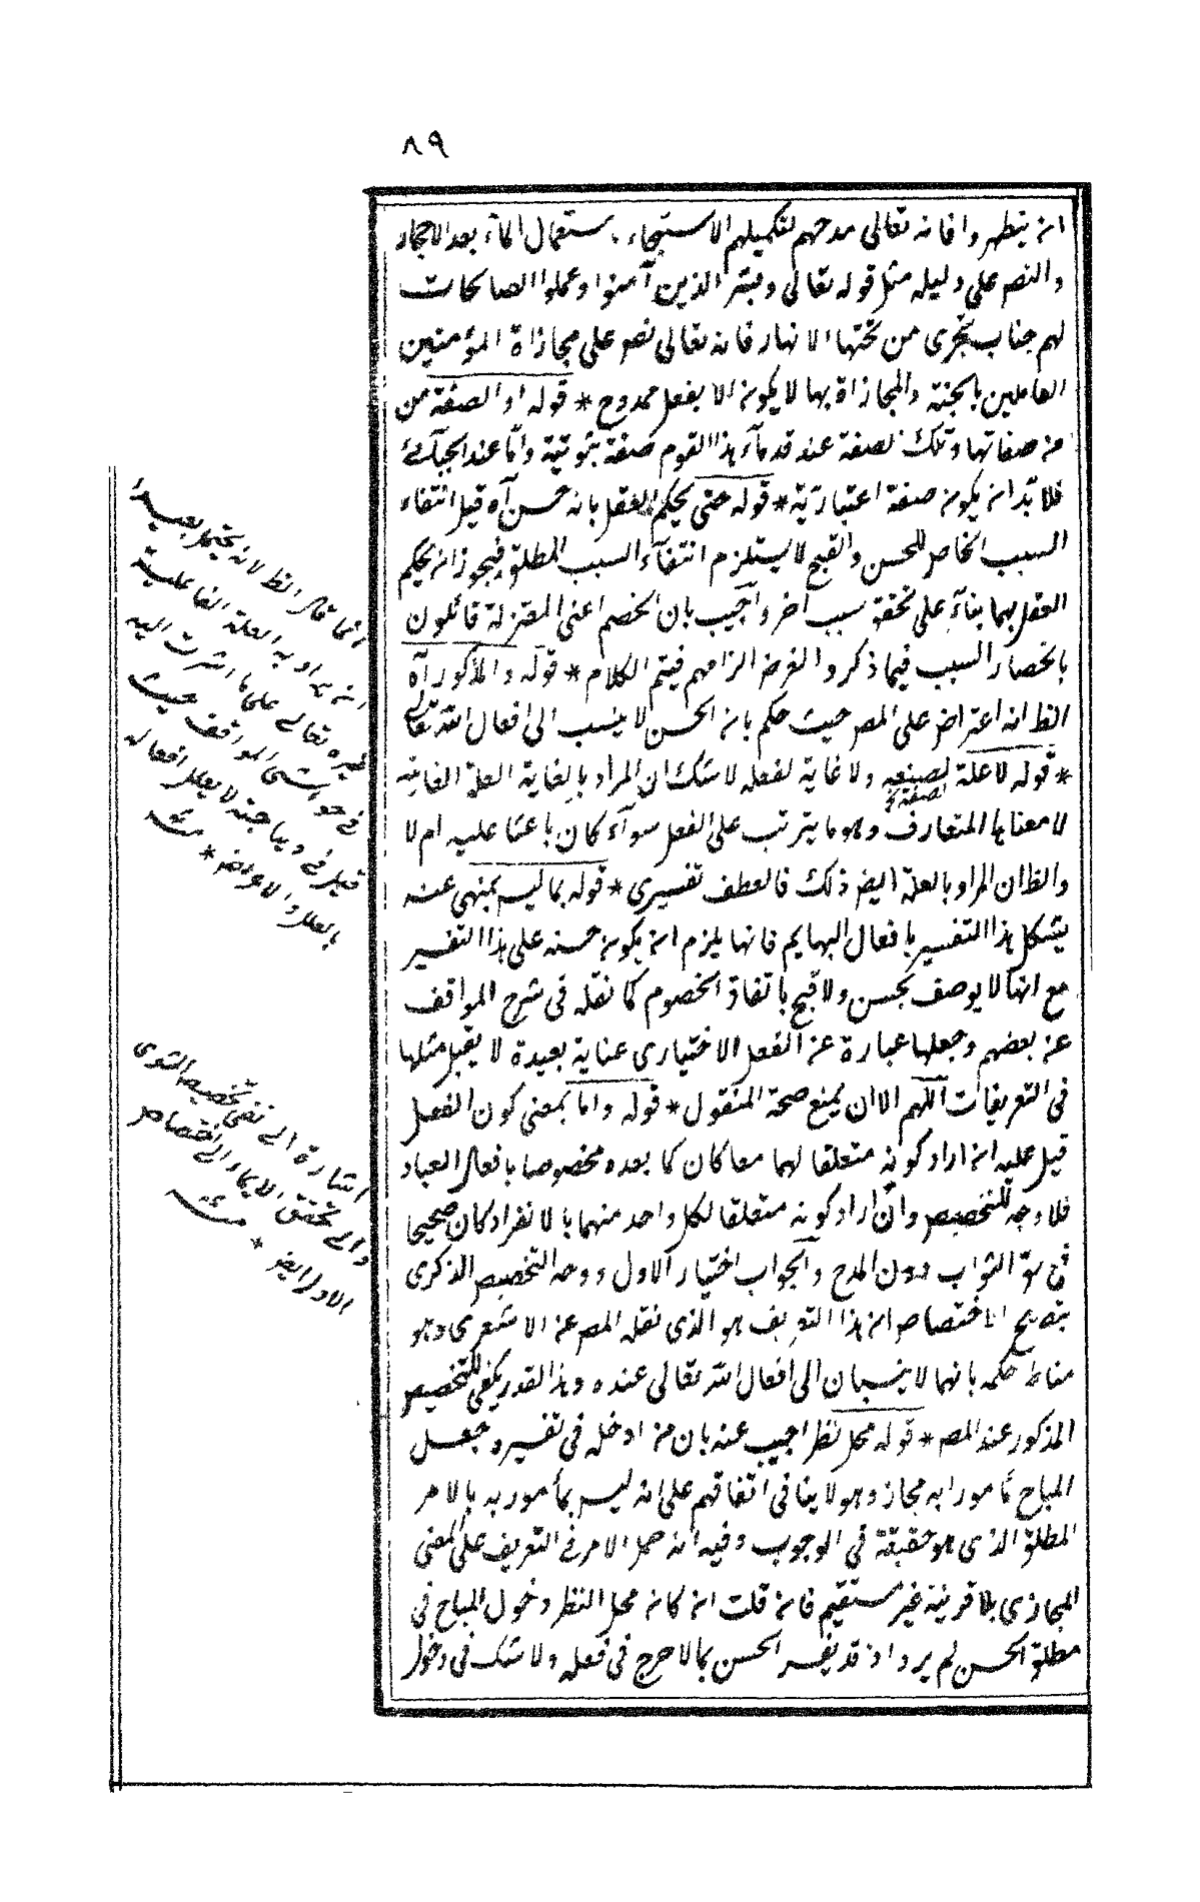 ٨٩
ان يتطهروا فانه تعالى مدحهم لتكميلهم الاستنجاء باستعمال الماء بعد الاحجار
والنص على دليله مثل قوله تعالى وبشر الذين آمنوا وعملوا الصالحات
لهم جنات تجرى من تحتها الانهار فانه تعالى نص على مجازاة المؤمنين
العاملين بالجنة والمجازاة بها لا يكون الا بفعل ممدوح * قوله او الصفة من
من صفاتها وتلك الصفة عند قدماء هذا القوم صفة ثبوتية واما عند الجبائى
فلا بد ان يكون صفة اعتبارية * قوله حتى يحكم العقل بانه حسن آه قيل انتفاء
السبب الخاص للحسن والقبح لا يستلزم انتفاء السبب المطلق فيجوز ان يحكم
العقل بهما بناء على تحقق سبب آخر واجيب بان الخصم اعنى المعتزلة قائلون
بانحصار السبب فيما ذكر والغرض الزامهم فيتم الكلام * قوله والمذكور آه
الظ انه اعتراض على المص حيث حكم بان الحسن لا ينسب الى افعال الله تعالى
* قوله لا علة لصنعه ولا غاية لفعله لا شك ان المراد بالغاية العلة الغائية
لا معناها المتعارف وهو ما يترتب على الفعل سواء كان باعثا عليه ام لا
والظ ان المراد بالعلة ايضا ذلك فالعطف تفسيرى * قوله بما ليس بمنهى عنه
يشكل هذا التفسير بافعال البهايم فانها يلزم ان يكون حسنه على هذا التفسير
مع انها لا يوصف بحسن ولا قبح باتفاق الخصوم كما نقله فى شرح المواقف
عن بعضهم وجعلها عبارة عن الفعل الاختيارى عناية بعيدة لا يقبل مثلها
فى التعريفات اللهم الا ان يمنع صحة المنقول * قوله واما بمعنى كون الفعل
قيل عليه ان اراد كونه متعلقا لهما معا كان كما بعده مخصوصا بافعال العباد
فلا وجه للتخصيص وان اراد كونه متعلقا لكل واحد منهما بالانفراد كان صحيحا
فى حق الثواب دون المدح والجواب اختيار الاول ووجه التخصيص الذكرى
بتصحيح الاختصاص ان هذا التعريف هو الذى نقله المص عن الاشعرى وهو
مناط حكمه بانهما لا ينسبان الى افعال الله تعالى عنده وهذا القدر يكفى للتخصيص
المذكور عند المص * قوله محل نظر اجيب عنه بان من ادخله فى تفسيره جعل
المباح مأمورا به مجاز وهو لا ينافى اتفاقهم على انه ليس بمأمور به بالامر
المطلق الذى هو حقيقة فى الوجوب وفيه انه حمل الامر فى التعريف على المعنى
المجازى بلا قرينة غير مستقيم فان قلت ان كان محل النظر دخول المباح فى
مطلق الحسن لم يرد اذ قد يفسر الحسن بما لا حرج فى فعله ولا شك فى دخول
انما قال الظ لانه يحتمل بعيدا
ان يراد به العلة الفاعلية
غيره تعالى على ما اشرت اليه
فى حواشى المواقف حيث
قيل فى ديباجته لا يعلل افعاله
بالعلل والاغراض * منه
اشارة الى نفى تخصيص الثوى
والى تحقق الايماء الى اختصاص
الاول ايض * منه